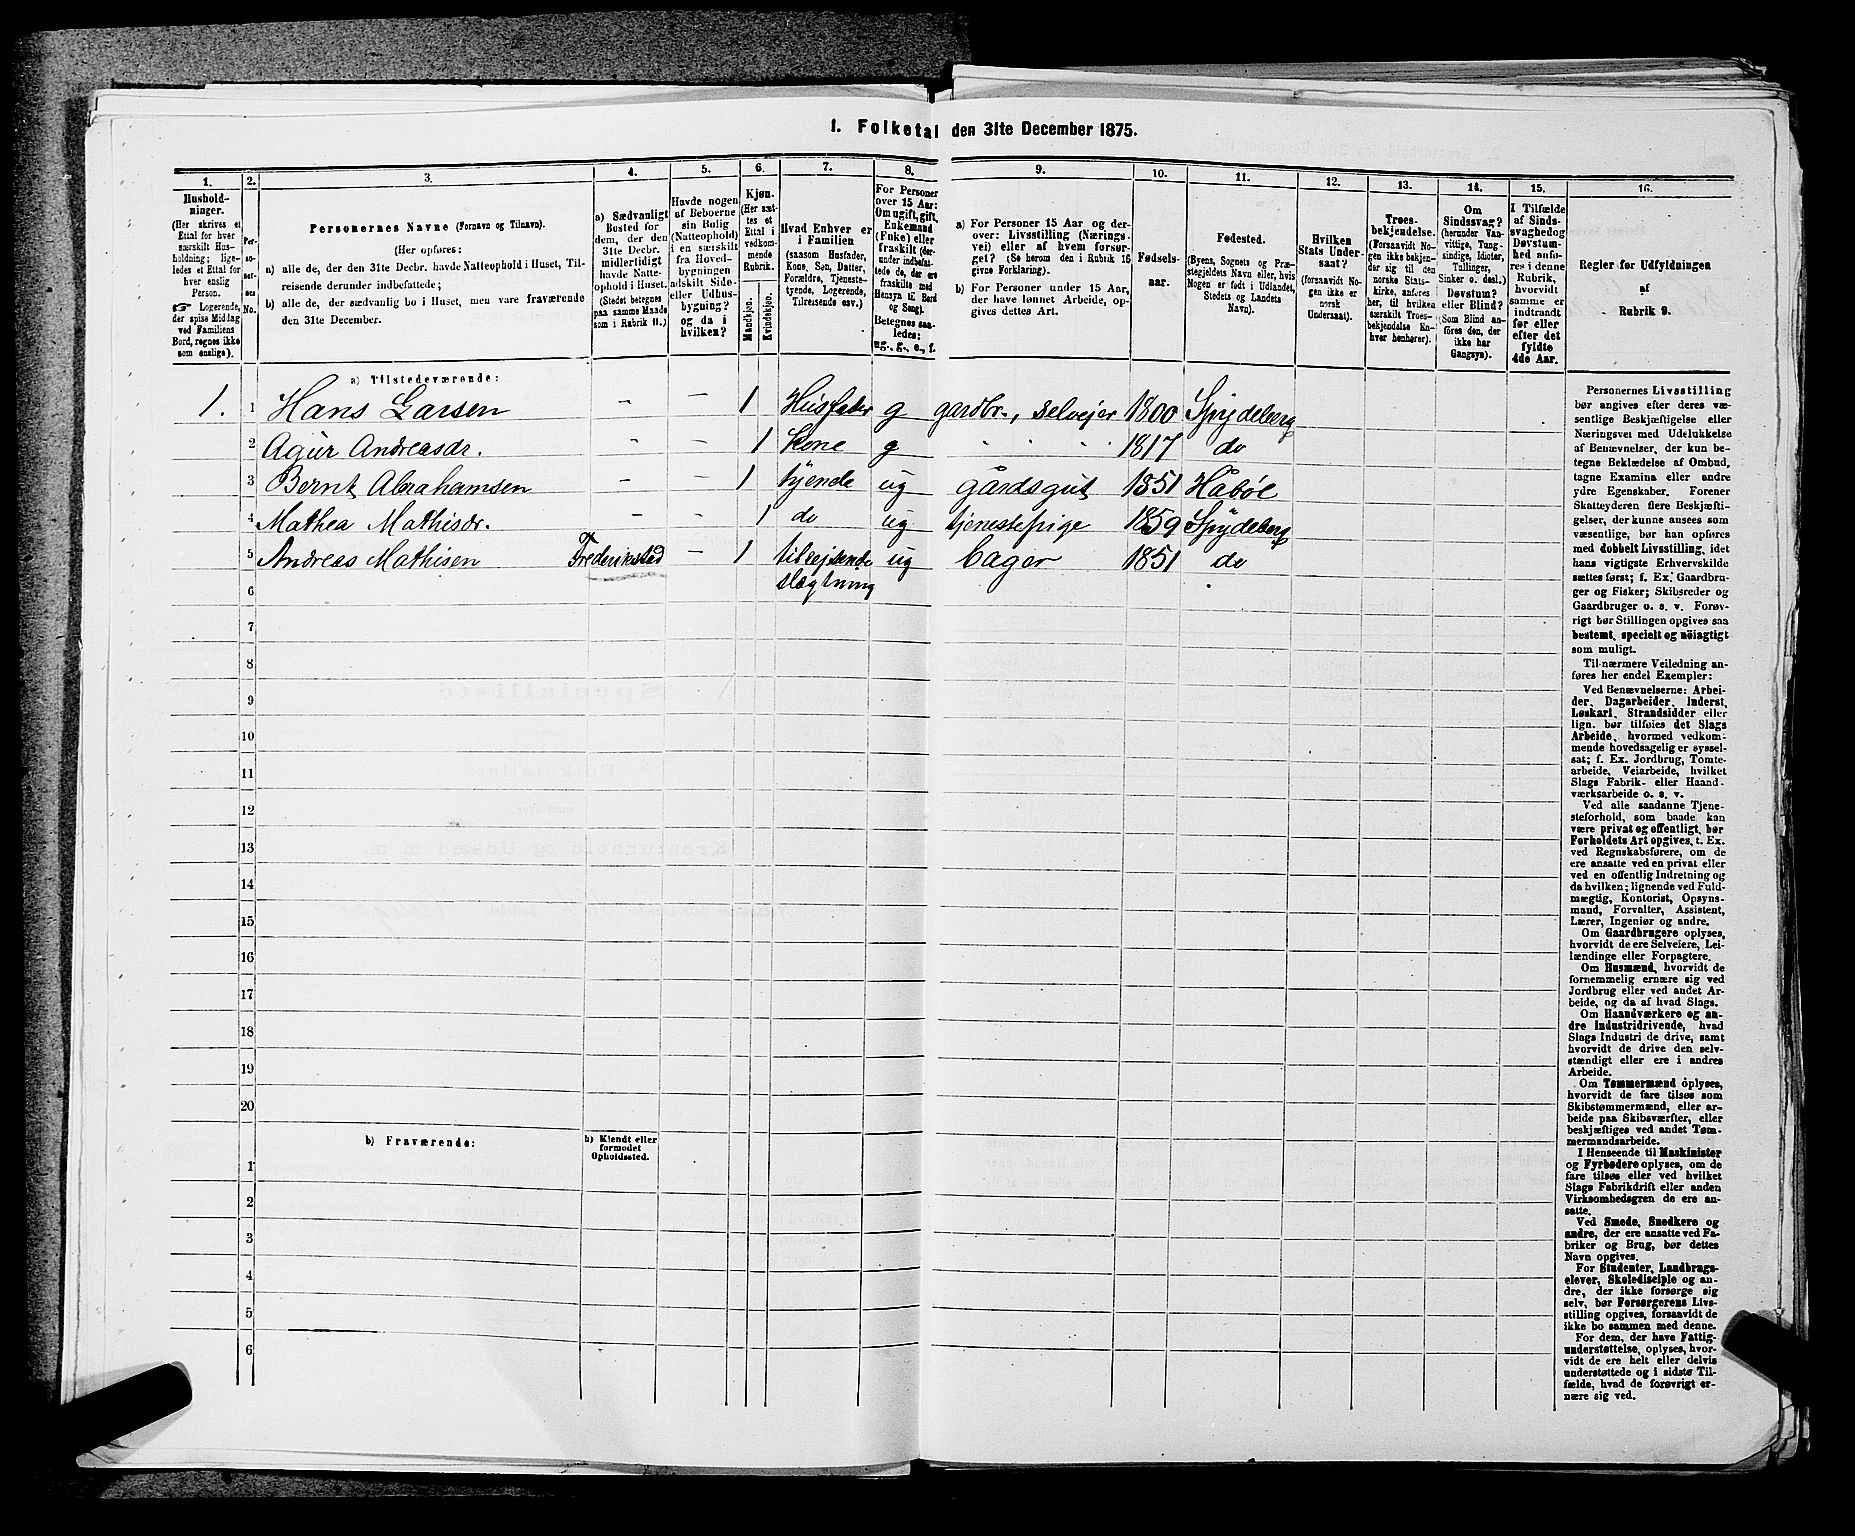 1. Folketal den 31te December 1875.
1. 2. 3. 4. 5. 6. 7. 8. 9. 10. 11. 12. 13. 14. 15. 16.
Husholdninger.
(Her skrives et
Ettal for hver
særskilt Husholdning;
ligeledes et Ettal for
hver enslig
Person.
☞ Logerende,
der spise Middag
ved Familiens
Bord, regnes ikke
som enslige).
Personernes No.
Personernes Navne (Fornavn og Tilnavn).
(Her opføres:
a) alle de, der den 31te Decbr. havde Natteophold i Huset, Tilreisende derunder indbefattede;
b) alle de, der sædvanlig bo i Huset, men vare fraværende
den 31te December.
a) Sædvanligt
Bosted for
dem, der den
31te Decbr.
midlertidigt
havde Natteophold i Huset.
(Stedet betegnes
paa samme Maade
som i Rubrik 11.)
Havde nogen
af Beboerne
sin Bolig
(Natteophold)
i en særskilt
fra Hovedbygningen
adskilt Side- eller Udhusbygning?
og da i
hvilken?
Kjøn.
(Her sættes et
Ettal i
vedkommende
Rubrik.
Mandkjøn.
Kvindekjøn.
Hvad Enhver er
i Familien
(saasom Husfader,
Kone, Søn, Datter,
Forældre, Tjenestetyende, Logerende,
Tilreisende osv.)
For Personer
over 15 Aar:
Om ugift, gift,
Enkemand
(Enke) eller
fraskilt (derunder indbefattede de, der ere
fraskilte med
Hensyn til Bord
og Seng).
Betegnes saaledes:
ug., g., e., f.
a) For Personer 15 Aar og derover: Livsstilling (Næringsvei) eller af hvem forsørget? (Se herom den i Rubrik 16
givne Forklaring).
b) For Personer under 15 Aar,
der have lønnet Arbeide, opgives dettes Art.
Fødselsaar.
Fødested.
(Byens, Sognets og Præstegjeldets Navn eller, hvis
Nogen er født i Udlandet,
Stedets og Landets
Navn).
Hvilken
Stats Undersaat?
(forsaavidt Nogen ikke er
norsk
Undersaat).
Troesbekjendelse.
(Forsaavidt Nogen ikke bekjender sig til den
norske Statskirke, anføres
her, til hvilken
særskilt Troesbekjendelse Enhver henhører).
Om
Sindssvag?
(herunder Vanvittige, Tungsindige, Idioter,
Tullinger,
Sinker o. desl.)
Døvstum?
eller Blind?
(Som Blind anføres den, der
ikke har
Gangsyn).
I Tilfælde
af Sindssvaghed og
Døvstumhed anføres i denne
Rubrik,
hvorvidt
samme er
indtraadt
før eller
efter det
fyldte
4de Aar.
Regler for Udfyldningen
af
Rubrik 9.
a) Tilstedeværende:
1. 1 Hans Larsen - - 1 Husfader g gardbr., selvejer 1800 Spydeberg
2 Agur Andreasdr. - - 1 kone g " " " " 1817 do
3 Bernt Abrahamsen - - 1 tyende ug gårdsgut 1851 Håbøl
4 Mathea Mathisdr. - - 1 do ug tjenestepige 1859 Spydeberg
5 Andreas Mathisen Frederikstad - 1 tilrejsende ug bager 1851 do
6 slægtning
7
8
9
10
11
12
13
14
15
16
17
18
19
20
b) Fraværende:
b) Kjendt eller
formodet
Opholdssted.
1
2
3
4
5
6
Personernes Livsstilling
bør angives efter deres væsentlige Beskjæftigelse eller
Næringsvei med Udelukkelse
af Benævnelser, der kun betegne Beklædelse af Ombud,
tagne Examina eller andre
ydre Egenskaber. Forener
Skatteyderen flere Beskjæftigelser, der kunne ansees som
væsentlige, bør han opføres
med dobbelt Livsstilling, idet
hans vigtigste Erhvervskilde
sættes først; f. Ex. Gaardbruger og Fisker; Skibsreder og
Gaardbruger o. s. v. Forøvrigt bør Stillingen opgives saa
bestemt, specielt og nöiagtigt
som muligt.
Til nærmere Veiledning anføres her endel Exempler:
Ved Benævnelserne: Arbeider, Dagarbeider, Inderst,
Løskarl, Strandsidder eller
lign. bør tilføies det Slags
Arbeide, hvormed vedkommende hovedsagelig er sysselsat; f. Ex. Jordbrug, Tomtearbeide, Veiarbeide, hvilket
Slags Fabrik- eller Haandværksarbeide o. s. v.
Ved alle saadanne Tjenesteforhold, som baade kan
være privat og offentligt, bør
Forholdets Art opgives, t. Ex.
ved Regnskabsførere, om de
ere ansatte ved en privat eller
ved en offentlig Indretning og
da hvilken; lignende ved Fuldmægtig, Kontorist, Opsynsmand, Forvalter, Assistent,
Lærer, Ingeniør og andre.
Om Gaardbrugere oplyses,
hvorvidt de ere Selveiere, Leilændinge eller Forpagtere.
Om Husmænd, hvorvidt de
fornemmelig ernære sig ved
Jordbrug eller ved andet Arbeide, og da af hvad Slags.
Om Haandværkere og andre Industridrivende, hvad
Slags Industri de drive, samt
hvorvidt de drive den selvstændigt eller ere i andres
Arbeide.
Om Tømmermænd oplyses,
hvorvidt de fare tilsøs som
Skibstømmermænd, eller arbeide paa Skibsværfter, eller
beskjæftiges ved andet Tømmermandsarbeide.
I Henseende til Maskinister
og Fyrbødere oplyses, om de
fare tilsøs eller ved hvilket
Slags Fabrikdrift eller anden
Virksomhedsgren de ere ansatte.
Ved Smede, Snedkere og
andre, der ere ansatte ved Fabriker og Brug, bør dettes
Navn opgives.
For Studenter, Landbrugselever, Skoledisciple og andre, der ikke forsørge sig
selv, bør Forsørgerens Livsstilling opgives, forsaavidt de
ikke bo sammen med denne.
For dem, der have Fattigunderstøttelse, oplyses, hvorvidt de ere helt eller delvis
understøttede og i sidste Tilfælde, hvad de forøvrigt ernære sig ved.